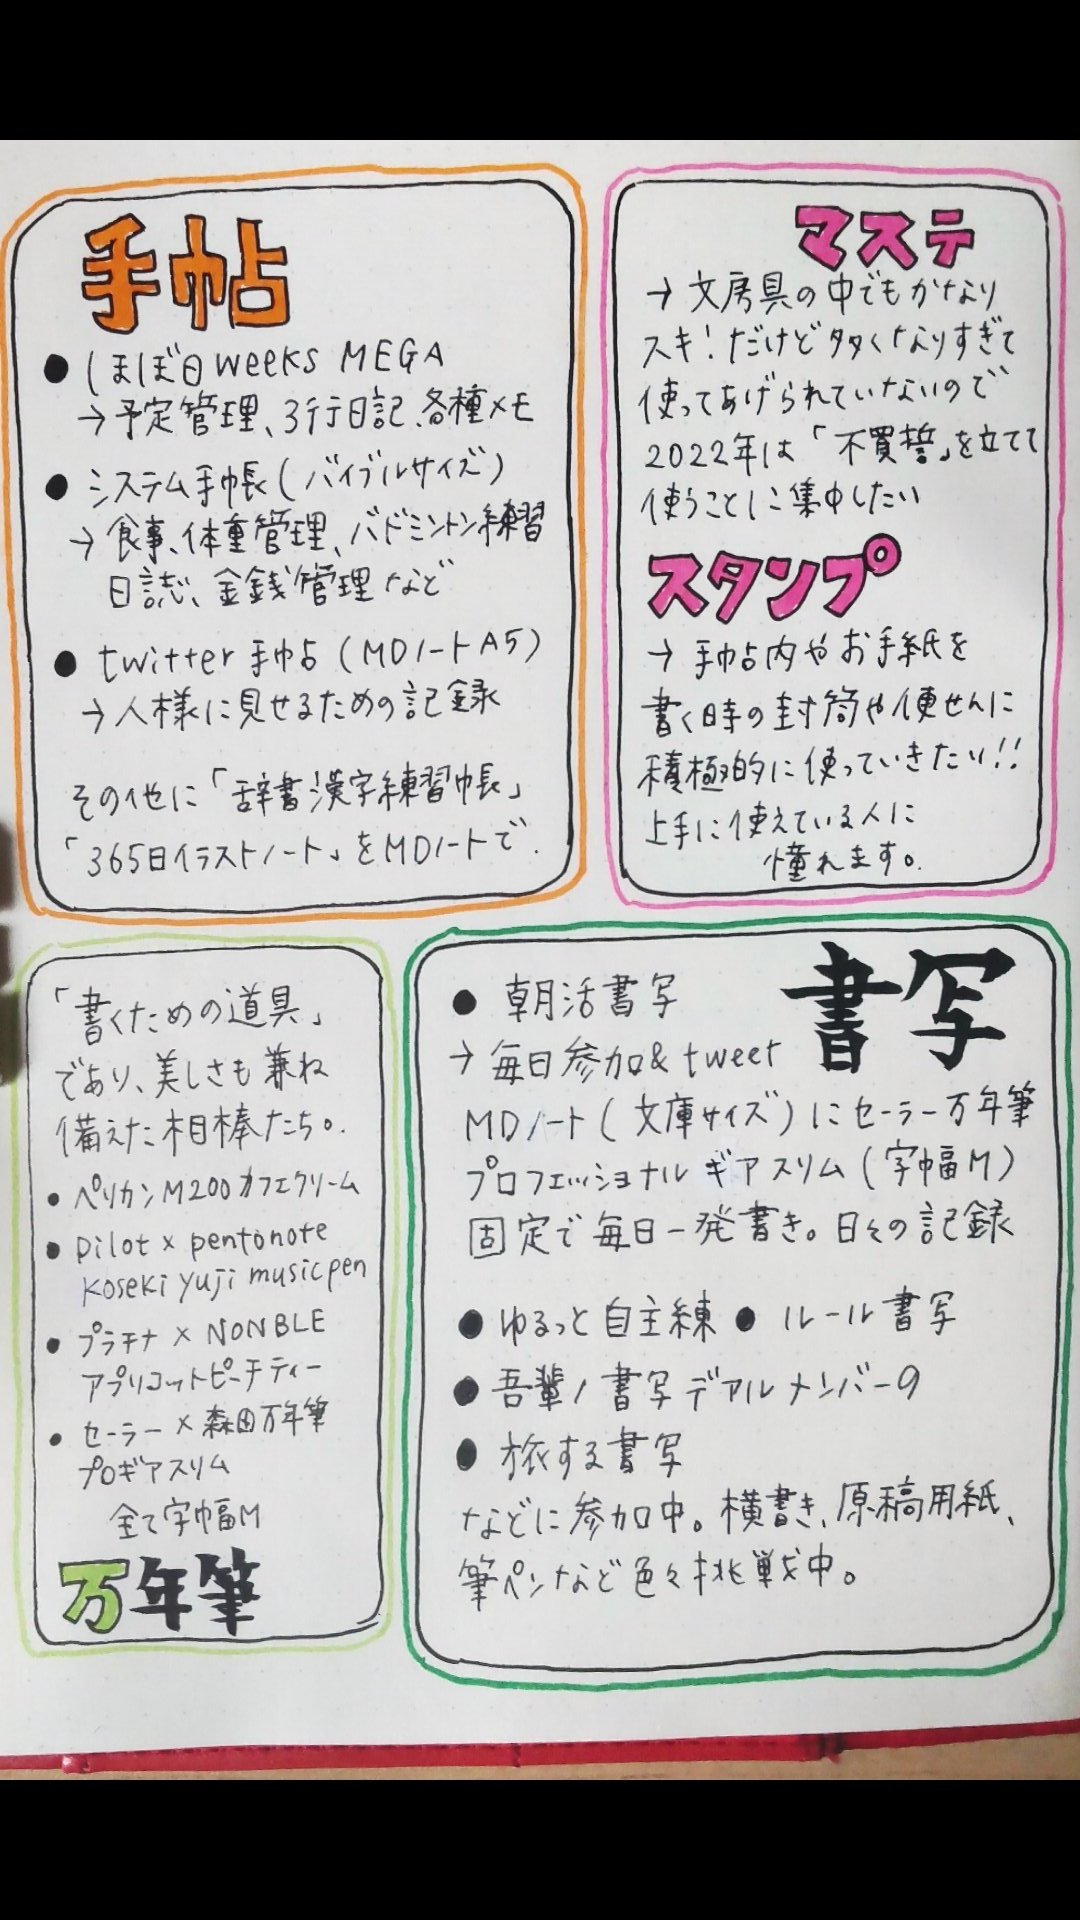 手帖
● ほぼ日weeks MEGA
→予定管理、3行日記、各種メモ
● システム手帳(バイブルサイズ)
→食事、体重管理、バドミントン練習
日誌、金銭管理など
● twitter手帖(MDノートA5)
→人様に見せるための記録
その他に「辞書漢字練習帳」
「365日イラストノート」をMDノートで.
マステ
→文房具の中でもかなり
スキ!だけど多くなりすぎて
使ってあげられていないので
2022年は「不買誓」を立てて
使うことに集中したい
スタンプ
→手帖内やお手紙を
書く時の封筒や便せんに
積極的に使っていきたい!!
上手に使えている人に
憧れます。
「書くための道具」
であり、美しさも兼ね
備えた相棒たち。
● ペリカンM200カフェクリーム
● pilot×pentonote
koseki yuji musicpen
● プラチナ×NONBLE
アプリコットピーチティー
● セーラー×森田万年筆
プロギアスリム
全て字幅M
万年筆
書写
● 朝活書写
→毎日参加&tweet
MDノート(文庫サイズ)にセーラー万年筆
プロフェッショナルギアスリム(字幅M)
固定で毎日一発書き。日々の記録
● ゆるっと自主練 ● ルール書写
● 吾輩ノ書写デアルメンバーの
● 旅する書写
などに参加中。横書き、原稿用紙、
筆ペンなど色々挑戦中。